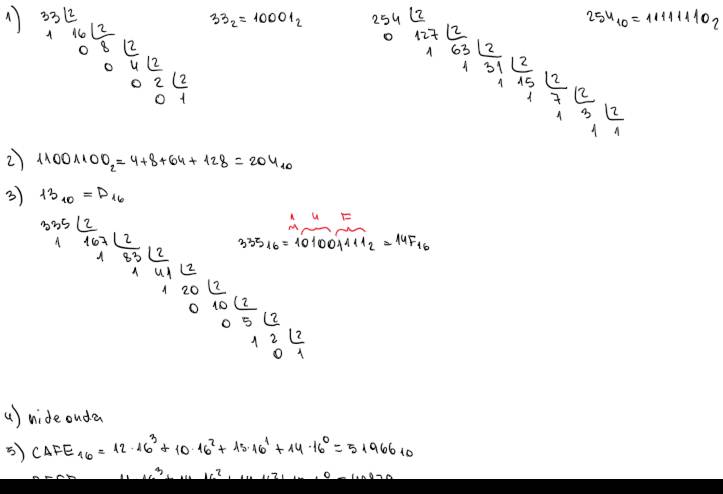 1) 33 |2
1 16 |2
0 8 |2
0 4 |2
0 2 |2
0 1
33₂ = 10001₂
254 |2
0 127 |2
1 63 |2
1 31 |2
1 15 |2
1 7 |2
1 3 |2
1 1
254₁₀ = 11111110₂
2) 11001100₂ = 4+8+64+128 = 204₁₀
3) 13₁₀ = D₁₆
335 |2
1 167 |2
1 83 |2
1 41 |2
1 20 |2
0 10 |2
0 5 |2
1 2 |2
0 1
1 4 F
335₁₆ = 101001111₂ = 14F₁₆
4) ni de onda
5) CAFE₁₆ = 12·16³ + 10·16² + 15·16¹ + 14·16⁰ = 51966₁₀